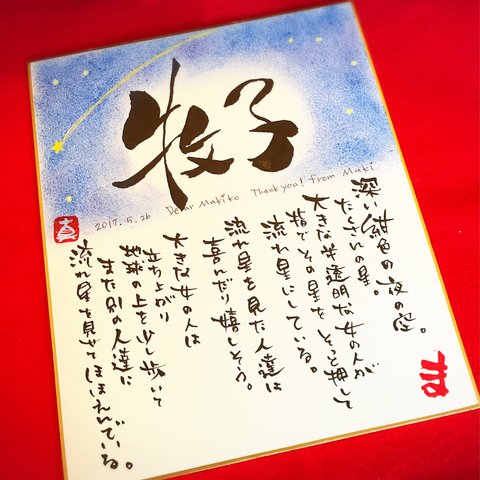 牧子
Dear Makiko Thank you! from Maki
2017.5.26
深い紺色の夜の空。
たくさんの星。
大きな半透明な女の人が
指でその星をそっと押して
流れ星にしている。
流れ星を見た人達は
喜んだり嬉しそう。
大きな女の人は
立ち上がり
地球の上を少し歩いて
また別の人達に
流れ星を見せてほほえんでいる。